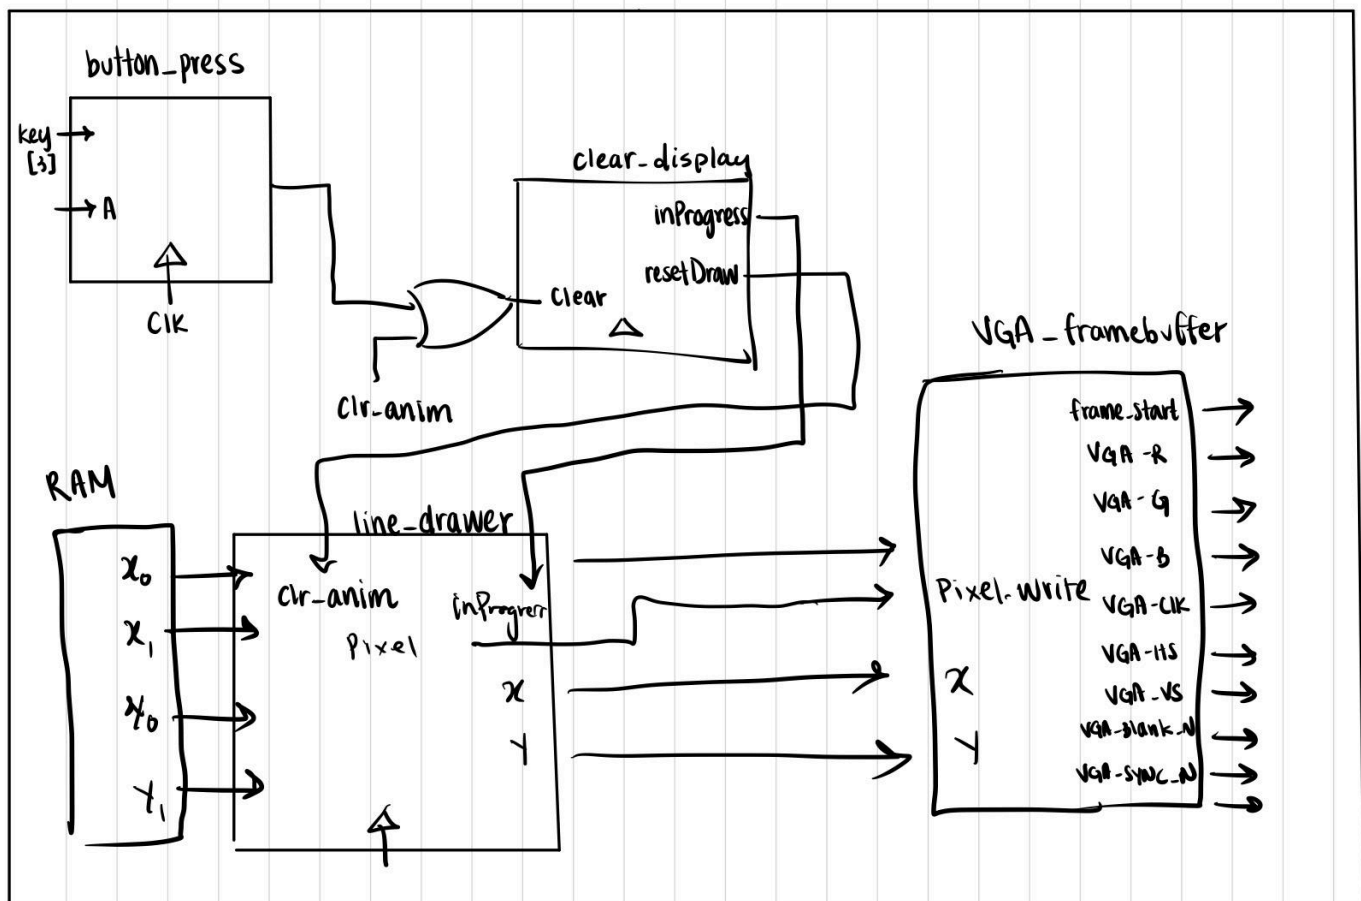 button_press
key
[3]
A
Clk
clear_display
inProgress
resetDraw
Clear
Clr_anim
VGA_framebuffer
frame_start
VGA-R
VGA-G
VGA-B
Pixel_write
VGA-Clk
VGA-HS
X
VGA_VS
VGA-Blank_N
Y
VGA-SYNC_N
RAM
X0
X1
Y0
Y1
line_drawer
clr_anim
inProgress
Pixel
X
Y